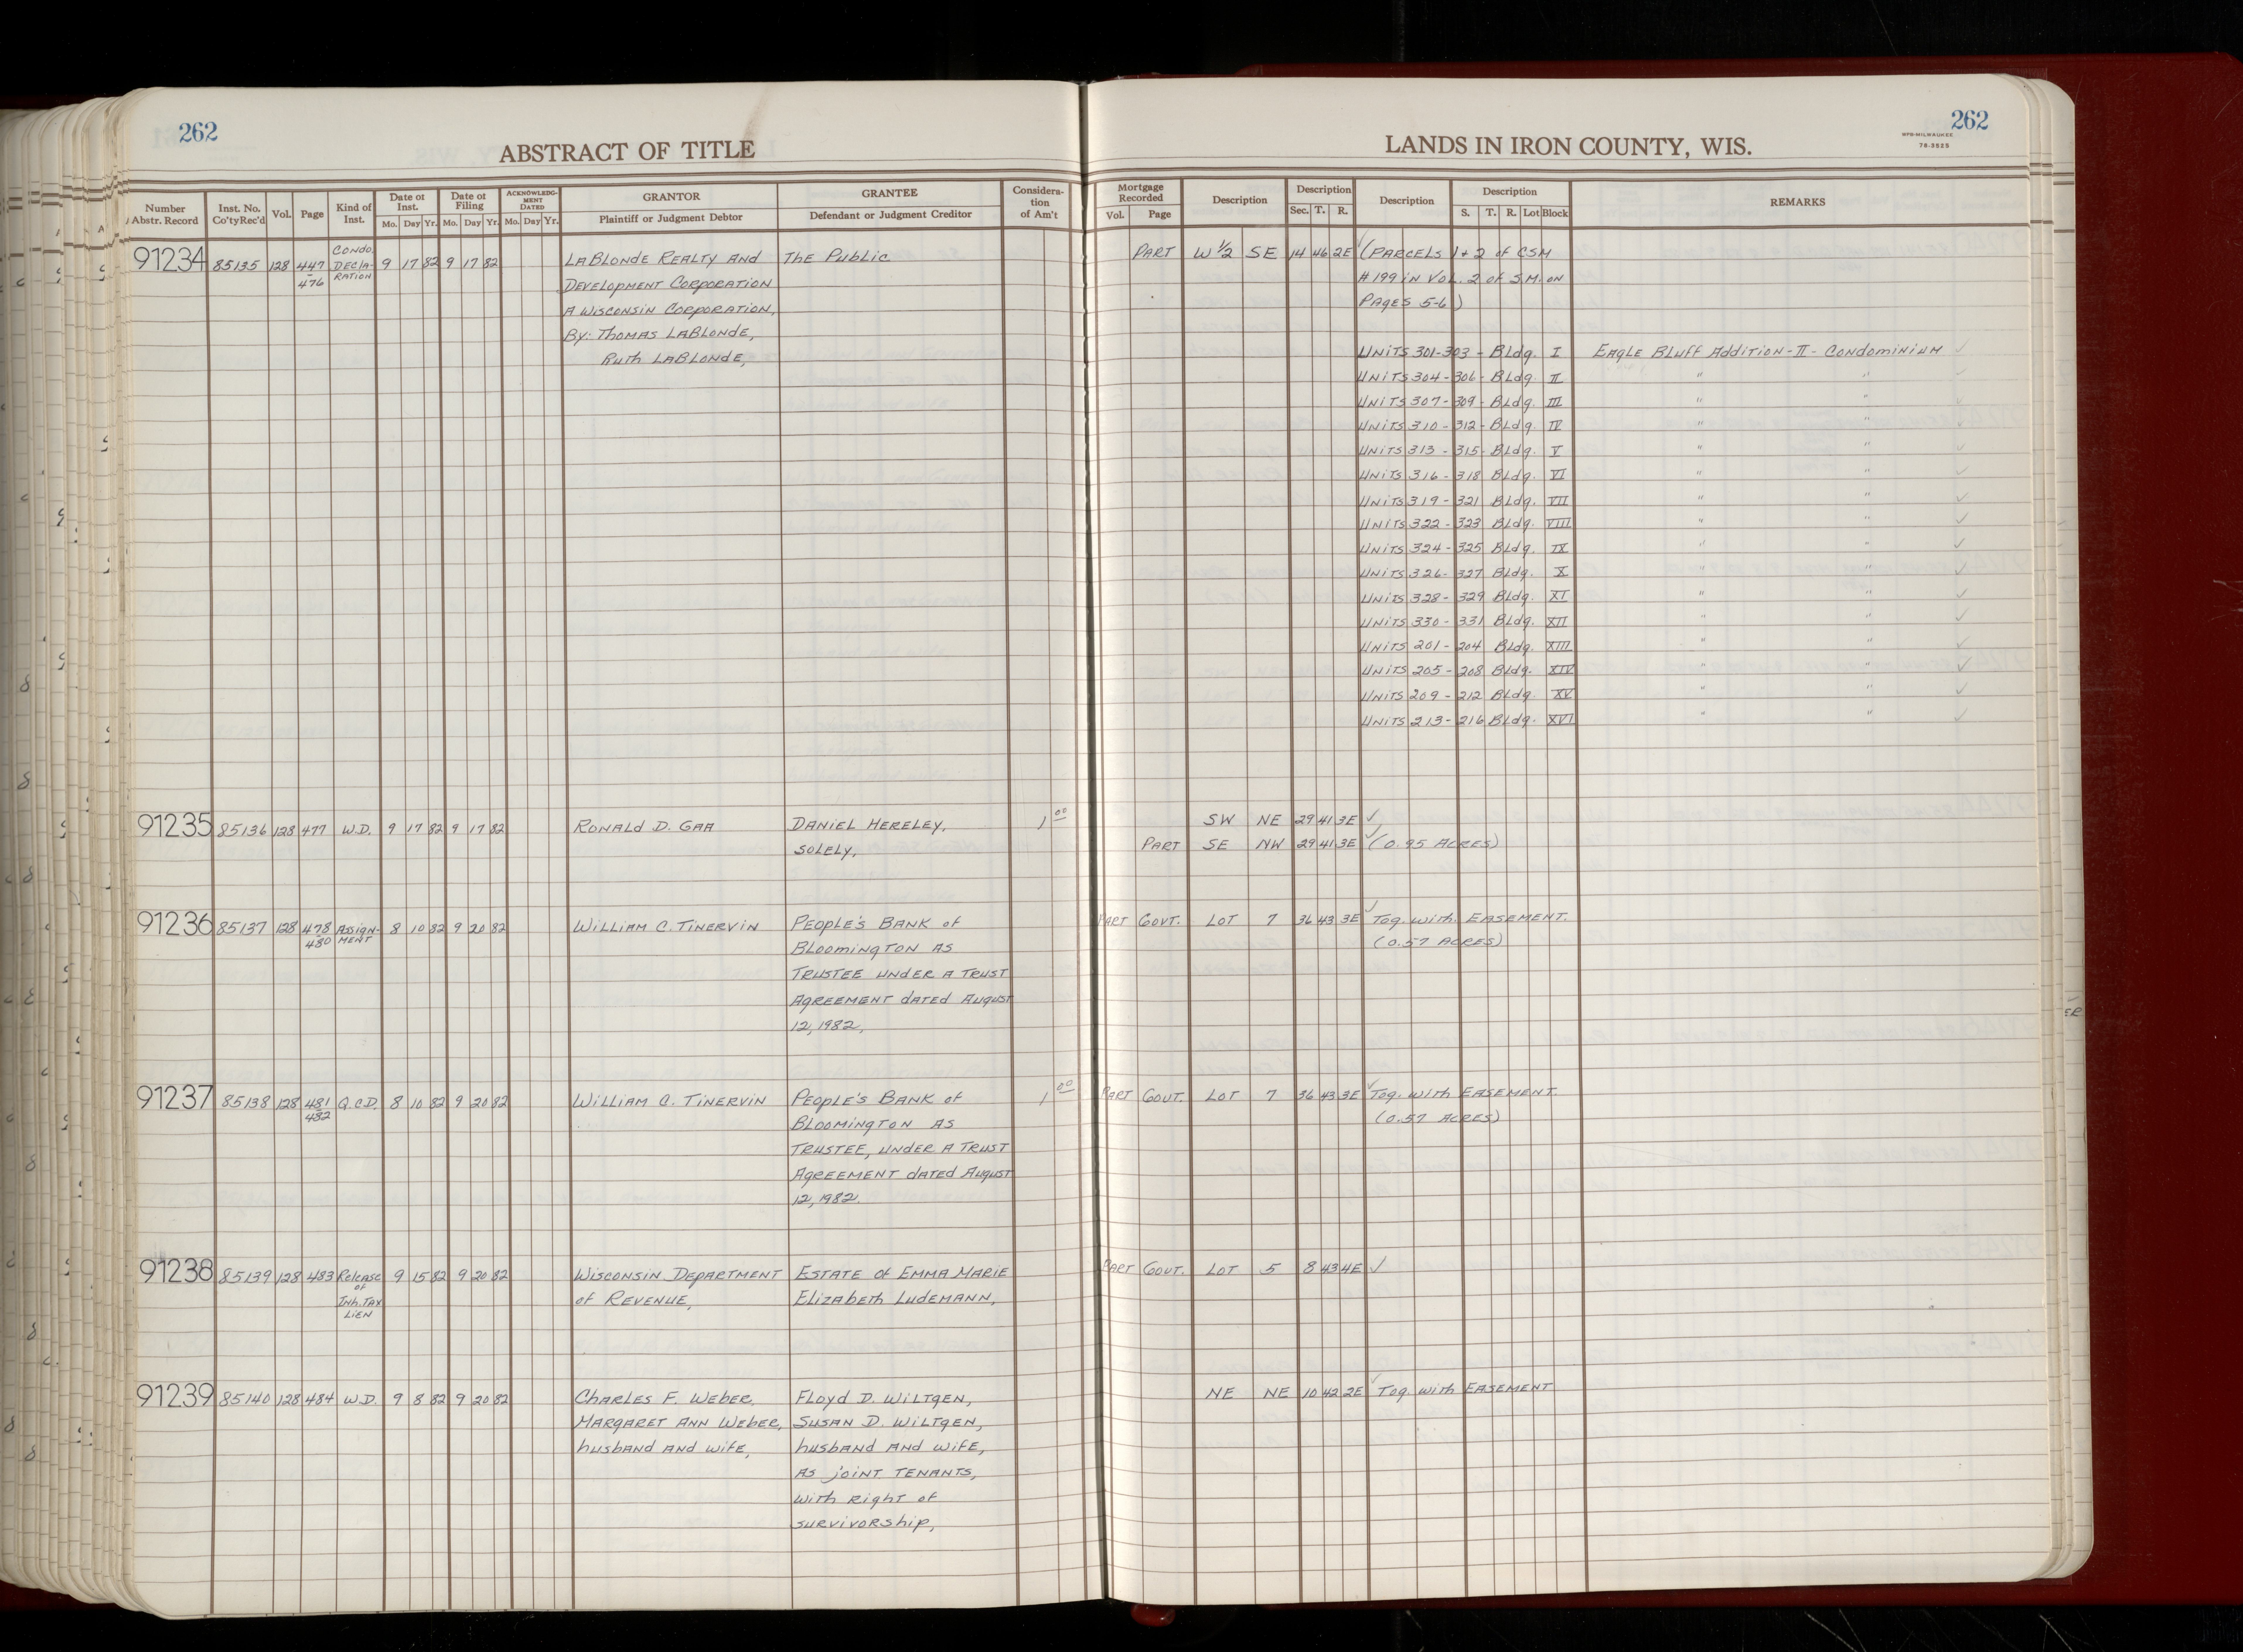 262
ABSTRACT OF TITLE
LANDS IN IRON COUNTY, WIS.
262
WPB-MILWAUKEE
78-3525
Number Abstr. Record
Inst. No. Co'tyRec'd
Vol.
Page
Kind of Inst.
Date of Inst.
Mo. Day Yr.
Date of Filing
Mo. Day Yr.
ACKNOWLEDGMENT DATED
Mo. Day Yr.
GRANTOR
Plaintiff or Judgment Debtor
GRANTEE
Defendant or Judgment Creditor
Considera-tion of Am't
Mortgage Recorded
Vol. Page
Description
Description
Sec. T. R.
Description
Description
S. T. R. Lot Block
REMARKS
91234 85135 128 447 CONDO. DECLA- 9 17 82 9 17 82 LABLONDE REALTY AND The Public PART W 1/2 SE 14 46 2E (PARCELS 1+2 of CSM
476 RATION DEVELOPMENT CORPORATION #199 IN VOL. 2 of S.M. ON
A WISCONSIN CORPORATION, PAGES 5-6)
By: THOMAS LABLONDE,
RUTH LABLONDE, UNITS 301-303 - BLdg. I EAGLE BLUFF ADDITION-II-CONDOMINIUM
UNITS 304-306- BLdg. II " "
UNITS 307-309- BLdg. III " "
UNITS 310-312- BLdg. IV " "
UNITS 313-315- BLdg. V " "
UNITS 316-318 BLdg. VI " "
UNITS 319-321 BLdg. VII " " ✓
UNITS 322-323 BLdg. VIII " " ✓
UNITS 324-325 BLdg. IX " " ✓
UNITS 326-327 BLdg. X " " ✓
UNITS 328-329 BLdg. XI " " ✓
UNITS 330-331 BLdg. XII " " ✓
UNITS 201-204 BLdg. XIII " " ✓
UNITS 205-208 BLdg. XIV " " ✓
UNITS 209-212 BLdg. XV " " ✓
UNITS 213-216 BLdg. XVI " " ✓
91235 85136 128 477 W.D. 9 17 82 9 17 82 RONALD D. GAA DANIEL HERELEY, 1 00 SW NE 29 41 3E ✓
SOLELY, PART SE NW 29 41 3E ✓ (0.95 ACRES)
91236 85137 128 478 ASSIGN- 8 10 82 9 20 82 WILLIAM C. TINERVIN PEOPLE'S BANK of PART GOVT. LOT 7 36 43 3E ✓ Tog. with EASEMENT.
480 MENT BLOOMINGTON AS (0.57 ACRES)
TRUSTEE UNDER A TRUST
AGREEMENT dATED AUGUST
12, 1982,
91237 85138 128 481 Q.C.D. 8 10 82 9 20 82 WILLIAM C. TINERVIN PEOPLE'S BANK of 1 00 PART GOVT. LOT 7 36 43 3E ✓ Tog. with EASEMENT.
482 BLOOMINGTON AS (0.57 ACRES)
TRUSTEE, UNDER A TRUST
AGREEMENT dATED AUGUST
12, 1982.
91238 85139 128 483 Release 9 15 82 9 20 82 WISCONSIN DEPARTMENT ESTATE of EMMA MARIE PART GOVT. LOT 5 8 43 4E ✓
of of REVENUE, ELIZABETH LUDEMANN,
INh. TAX
LIEN
91239 85140 128 484 W.D. 9 8 82 9 20 82 CHARLES F. WEBER, FLOYD D. WILTGEN, NE NE 10 42 2E ✓ Tog. with EASEMENT
MARGARET ANN WEBER, SUSAN D. WILTGEN,
husband AND wife, husband AND wife,
AS JOINT TENANTS,
with Right of
SURVIVORship,